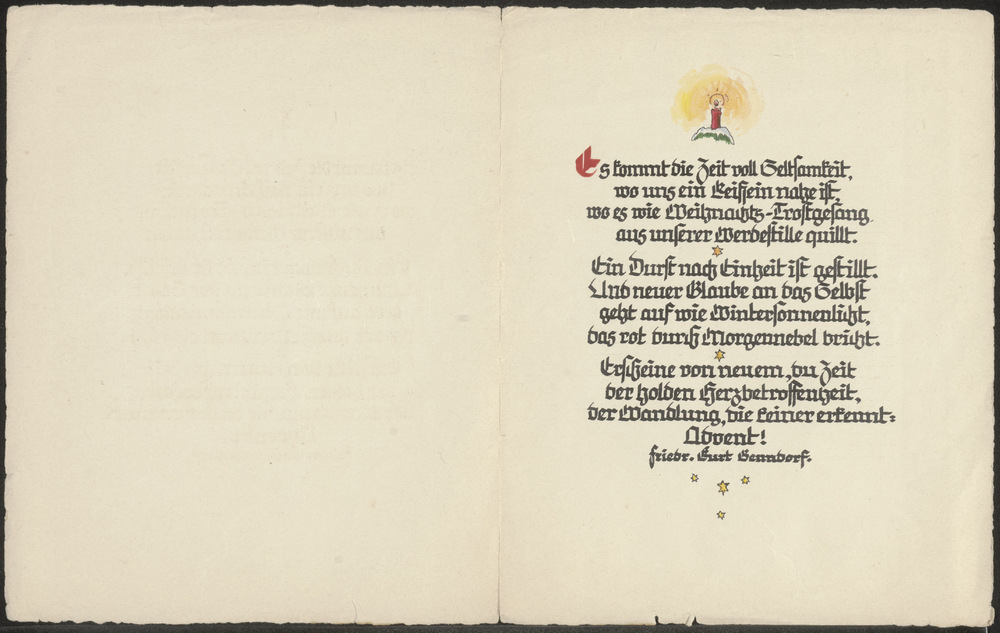 Es kommt die Zeit voll Seltsamkeit,
wo uns ein Leissein nahe ist,
wo es wie Weihnachts-Trostgesang
aus unserer Werdestille quillt.
Ein Durst nach Einheit ist gestillt.
Und neuer Glaube an das Selbst
geht auf wie Wintersonnenlicht,
das rot durch Morgennebel bricht.
Erscheine von neuem, du Zeit
der holden Herzbetroffenheit,
der Wandlung, die keiner erkennt-
Advent!
Friedr. Kurt Benndorf.